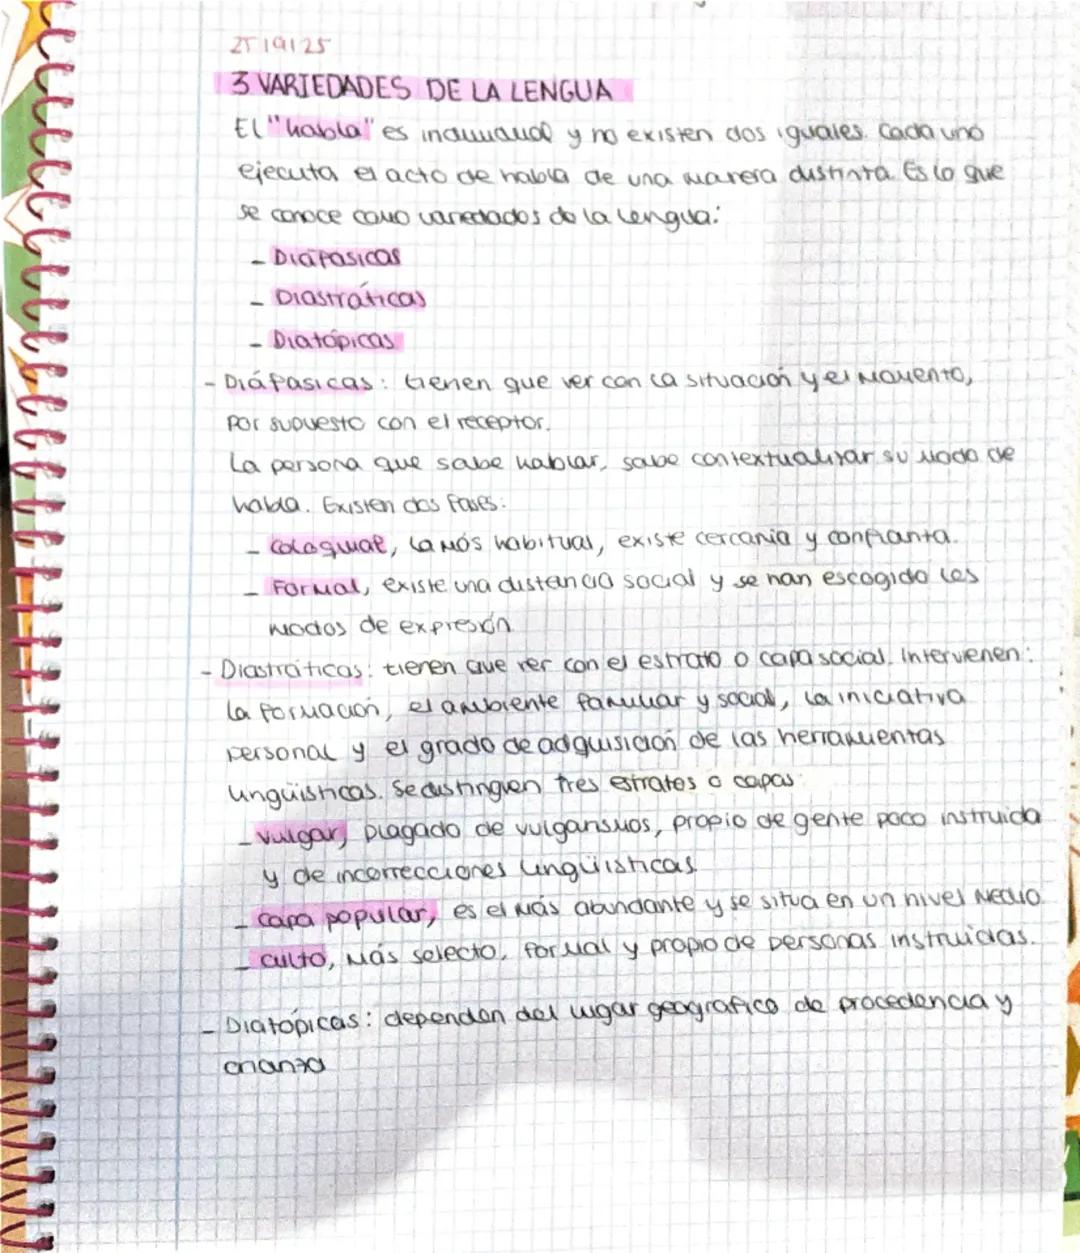 25 19 1 25
3 VARIEDADES DE LA LENGUA
El "habla" es individual y no existen dos iguales. Cada uno
ejecuta el acto de habla de una manera distinta. Es lo que
se conoce como variedades de la lengua:
- Diáfasicas
- Diastráticas
- Diatópicas
- Diáfasicas: tienen que ver con la situación y el momento,
por supuesto con el receptor.
La persona que sabe hablar, sabe contextualizar su modo de
habla. Existen dos fases:
- coloquial, la más habitual, existe cercania y confianza.
- Formal, existe una distancia social y se han escogido los
modos de expresión
- Diastráticas: tienen que ver con el estrato o capa social. Intervienen:
la formación, el ambiente familiar y social, la iniciativa
personal y el grado de adquisición de las herramientas
lingüísticas. Se distinguen tres estratos o capas:
- vulgar, plagado de vulgarismos, propio de gente poco instruida
y de incorrecciones lingüísticas.
- capa popular, es el más abundante y se situa en un nivel medio
- culto, más selecto, formal y propio de personas instruidas.
- Diatópicas: dependen del lugar geográfico de procedencia y
crianza